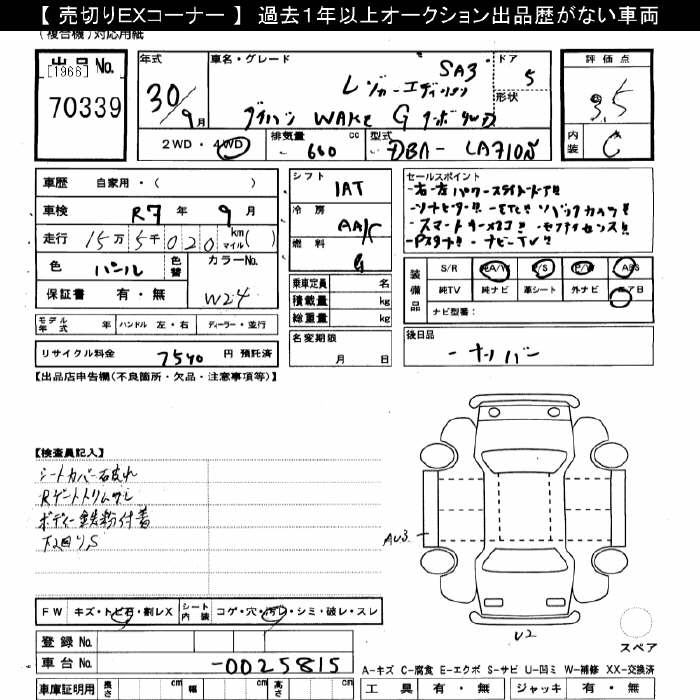 【 売切りEXコーナー 】 過去1年以上オークション出品歴がない車両
(複合機)対応用紙
出品 No.
[1966]
70339
年式
30年
9月
車名・グレード
SA3
レジャーエディション
ダイハツ WAKE G ターボ 4WD
ドア
5
形状
評価点
3.5
内装
C
2WD・4WD
排気量
660 cc
型式
DBA- LA710S
車歴 自家用・( )
車検 R7 年 9 月
走行 15万5千020 km マイル ( )
色 パール
色替
カラーNo.
W24
保証書 有・無
シフト
IAT
冷房
AAC
燃料
G
乗車定員 名
積載量 kg
総重量 kg
名変期限
月 日
セールスポイント
-右・左パワースライドドア!!
-ソナビター!! -ETC!! ・バックカメラ!!
-スマートキー×2コ!!
-Pスタ!! -ナビ-TV!!
装備品
S/R 純A/W P/S P/W ABS
純TV 純ナビ 革シート 外ナビ エアB
ナビ型番:
モデル年式 年 ハンドル 左・右 ディーラー・並行
リサイクル料金 7540 円 預託済
後日品
-ナンバー
【出品店申告欄(不良箇所・欠品・注意事項等)】
【検査員記入】
シートカバー右皮れ
RゲートトリムWレ
ボディー鉄粉付着
下回りS
AU3
U2
FW キズ・トビ石・割レX
シート内装 コゲ・穴・汚レ・シミ・破レ・スレ
登録 No.
車台 No. -0025815
スペア
A-キズ C-腐食 E-エクボ S-サビ U-凹ミ W-補修 XX-交換済
車庫証明用 長さ cm 幅 cm 高さ cm
工具 有・無 ジャッキ 有・無